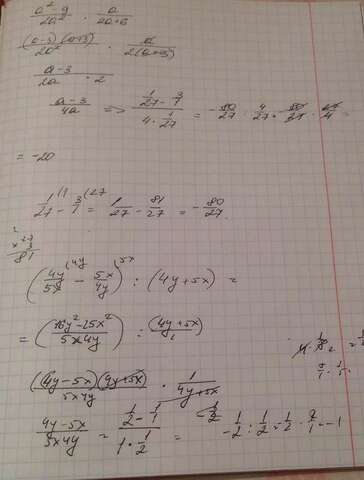 a²-9/2a² · a/2a+6
(a-3)(a+3)/2a² · a/2(a+3)
a-3/2a · 2
a-3/4a => 1/27 - 3/1 / 4 · 1/27 = -80/27 · 4/27 = -80/27 · 27/4 =
= -20
1/27 - 3/1 = 1/27 - 81/27 = -80/27
x 27
3
81
(4y/5x - 5x/4y) : (4y+5x) =
= (16y²-25x²/5x4y) : (4y+5x)/1
(4y-5x)(4y+5x)/5x4y · 1/4y+5x
4y-5x/5x4y = 1/2 - 1/1 / 1 · 1/2 = -1/2 : 1/2 = -1/2 · 2/1 = -1